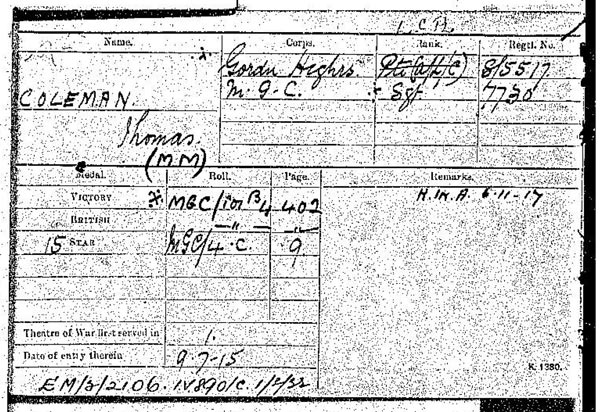 Name. Corps. Rank. Regtl. No.
Gordn Highrs Pte (a/c) S/5517
COLEMAN. M.G.C. Sgt 7730
Thomas.
(MM)
Medal. Roll. Page. Remarks.
VICTORY * MGC/101 B4 402 K.IN.A. 6-11-17
BRITISH —"— —"—
15 STAR MGC/4.C 9
Theatre of War first served in 1.
Date of entry therein 9-7-15
K. 1380.
EM/3/2106. IV890/C.